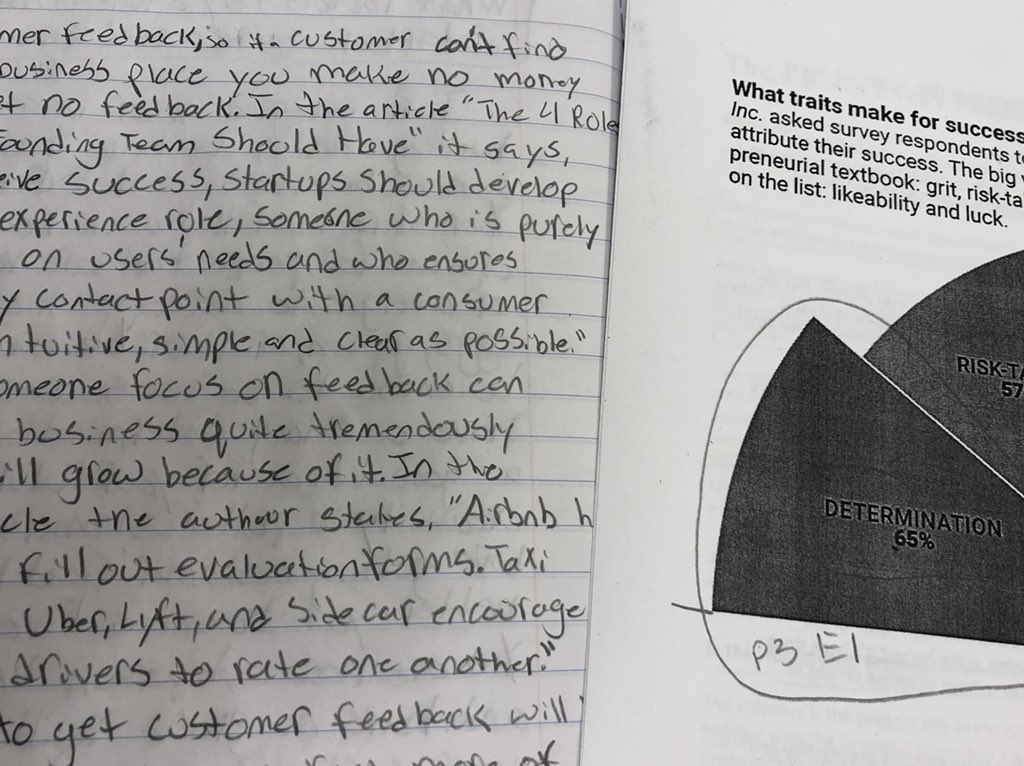 mer feedback, so if a customer can't find
business place you make no money
t no feedback. In the article "The 4 Role
Founding Team Should Have" it says,
eive success, startups should develop
experience role, someone who is purely
on users' needs and who ensures
y contact point with a consumer
ntuitive, simple and clear as possible."
omeone focus on feedback can
business quite tremendously
ill grow because of it. In the
cle the authour states, "Airbnb h
fill out evaluation forms. Taxi
Uber, Lyft, and Sidecar encourage
drivers to rate one another."
to get customer feedback will
more of
What traits make for success
Inc. asked survey respondents to
attribute their success. The big
preneurial textbook: grit, risk-ta
on the list: likeability and luck.
RISK-TA
57
DETERMINATION
65%
p3 E1